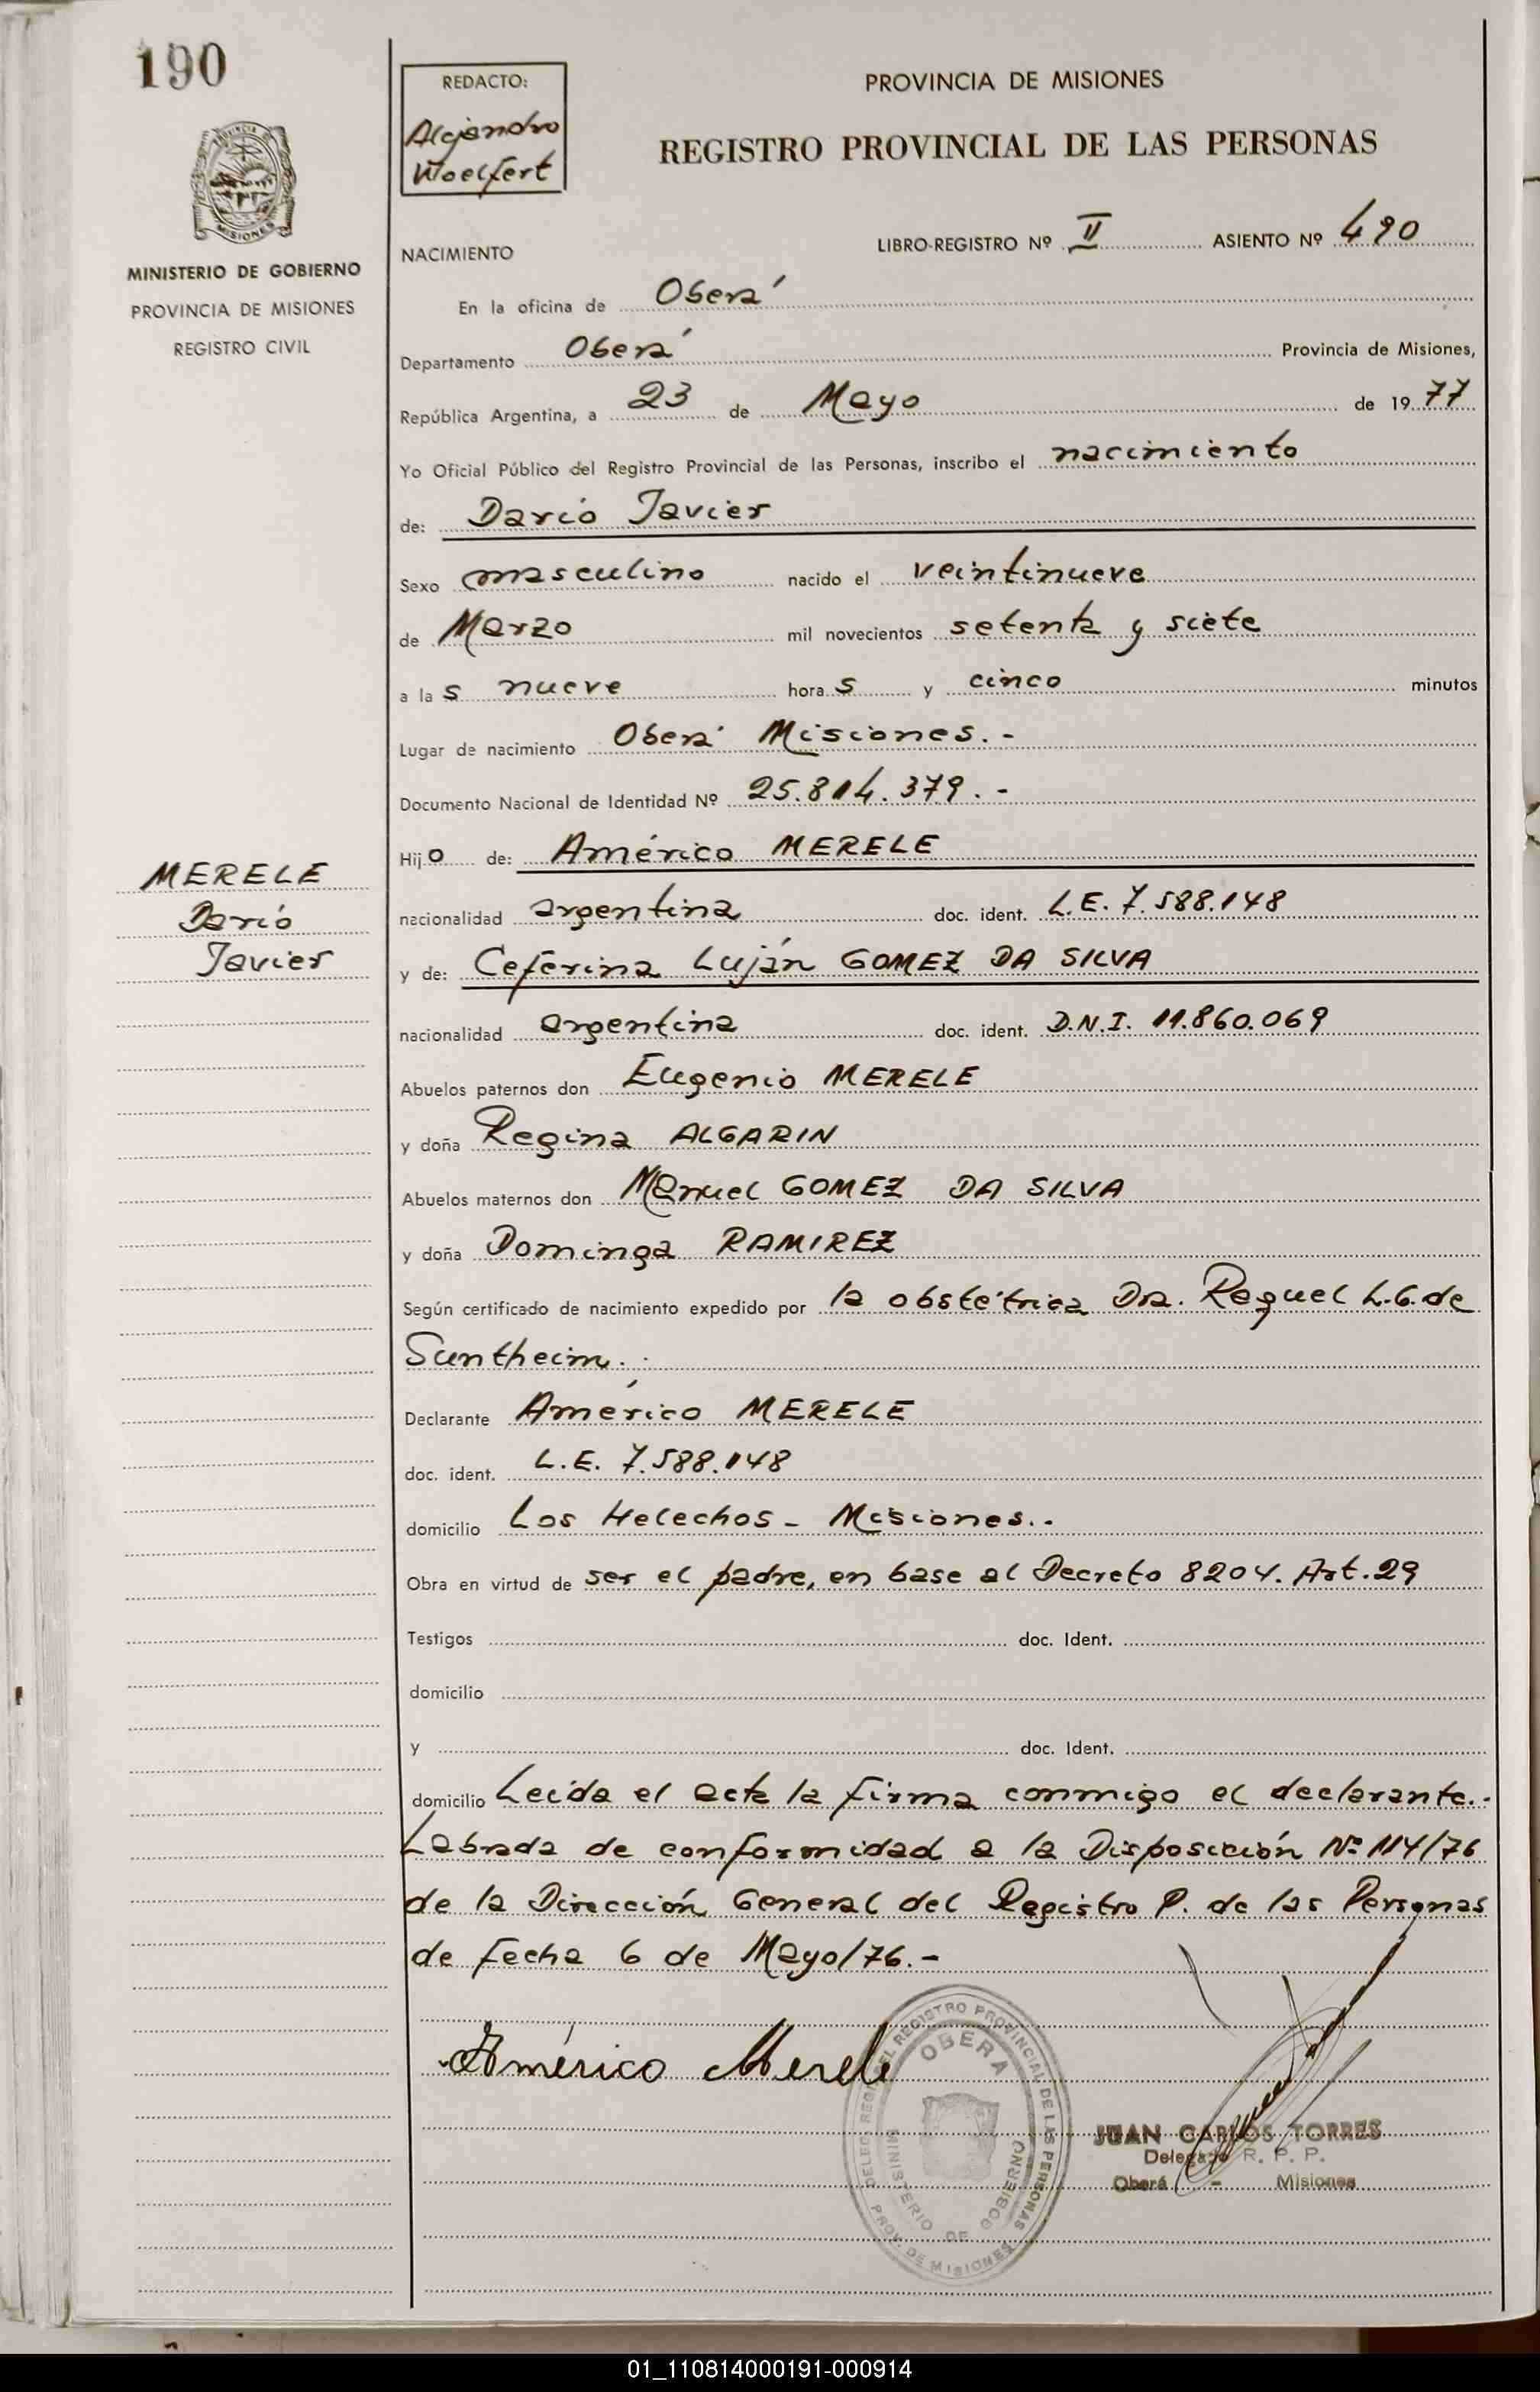 190
REDACTO:
Alejandro
Woelfert
PROVINCIA DE MISIONES
REGISTRO PROVINCIAL DE LAS PERSONAS
MINISTERIO DE GOBIERNO
PROVINCIA DE MISIONES
REGISTRO CIVIL
NACIMIENTO LIBRO-REGISTRO Nº II ASIENTO Nº 490
En la oficina de Oberá
Departamento Oberá Provincia de Misiones,
República Argentina, a 23 de Mayo de 1977
Yo Oficial Público del Registro Provincial de las Personas, inscribo el nacimiento
de: Darío Javier
Sexo masculino nacido el veintinueve
de Marzo mil novecientos setenta y siete
a las nueve horas y cinco minutos
Lugar de nacimiento Oberá Misiones.-
Documento Nacional de Identidad Nº 25.814.379.-
Hijo de: Américo MERELE
MERELE
Darío
Javier
nacionalidad argentina doc. ident. L.E. 7.588.148
y de: Ceferina Luján GOMEZ DA SILVA
nacionalidad argentina doc. ident. D.N.I. 11.860.069
Abuelos paternos don Eugenio MERELE
y doña Regina ALGARIN
Abuelos maternos don Manuel GOMEZ DA SILVA
y doña Dominga RAMIREZ
Según certificado de nacimiento expedido por la obstétrica Dra. Raquel L.G. de
Suntheim.
Declarante Américo MERELE
doc. ident. L.E. 7.588.148
domicilio Los Helechos - Misiones.-
Obra en virtud de ser el padre, en base al Decreto 8204. Art. 29
Testigos doc. Ident.
domicilio
y doc. Ident.
domicilio Leída el acta la firma conmigo el declarante.-
Labrada de conformidad a la Disposición Nº 114/76
de la Dirección General del Registro P. de las Personas
de fecha 6 de Mayo/76.-
Américo Merele
DELEG. REG. DEL REGISTRO PROVINCIAL DE LAS PERSONAS
OBERA
MINISTERIO DE GOBIERNO
PROV. DE MISIONES
JUAN CARLOS TORRES
Delegado R. P. P.
Oberá - Misiones
01_110814000191-000914